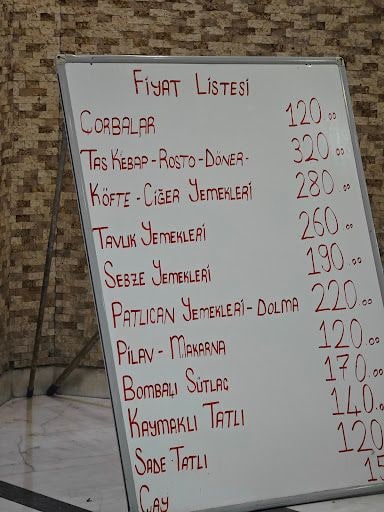 FİYAT LİSTESİ
ÇORBALAR 120.00
TAS KEBAP-ROSTO-DÖNER- 320.00
KÖFTE - CİĞER YEMEKLERİ 280.00
TAVUK YEMEKLERİ 260.00
SEBZE YEMEKLERİ 190.00
PATLICAN YEMEKLERİ - DOLMA 220.00
PİLAV - MAKARNA 120.00
BOMBALI SÜTLAÇ 170.00
KAYMAKLI TATLI 140.00
SADE TATLI 120.
ÇAY 15